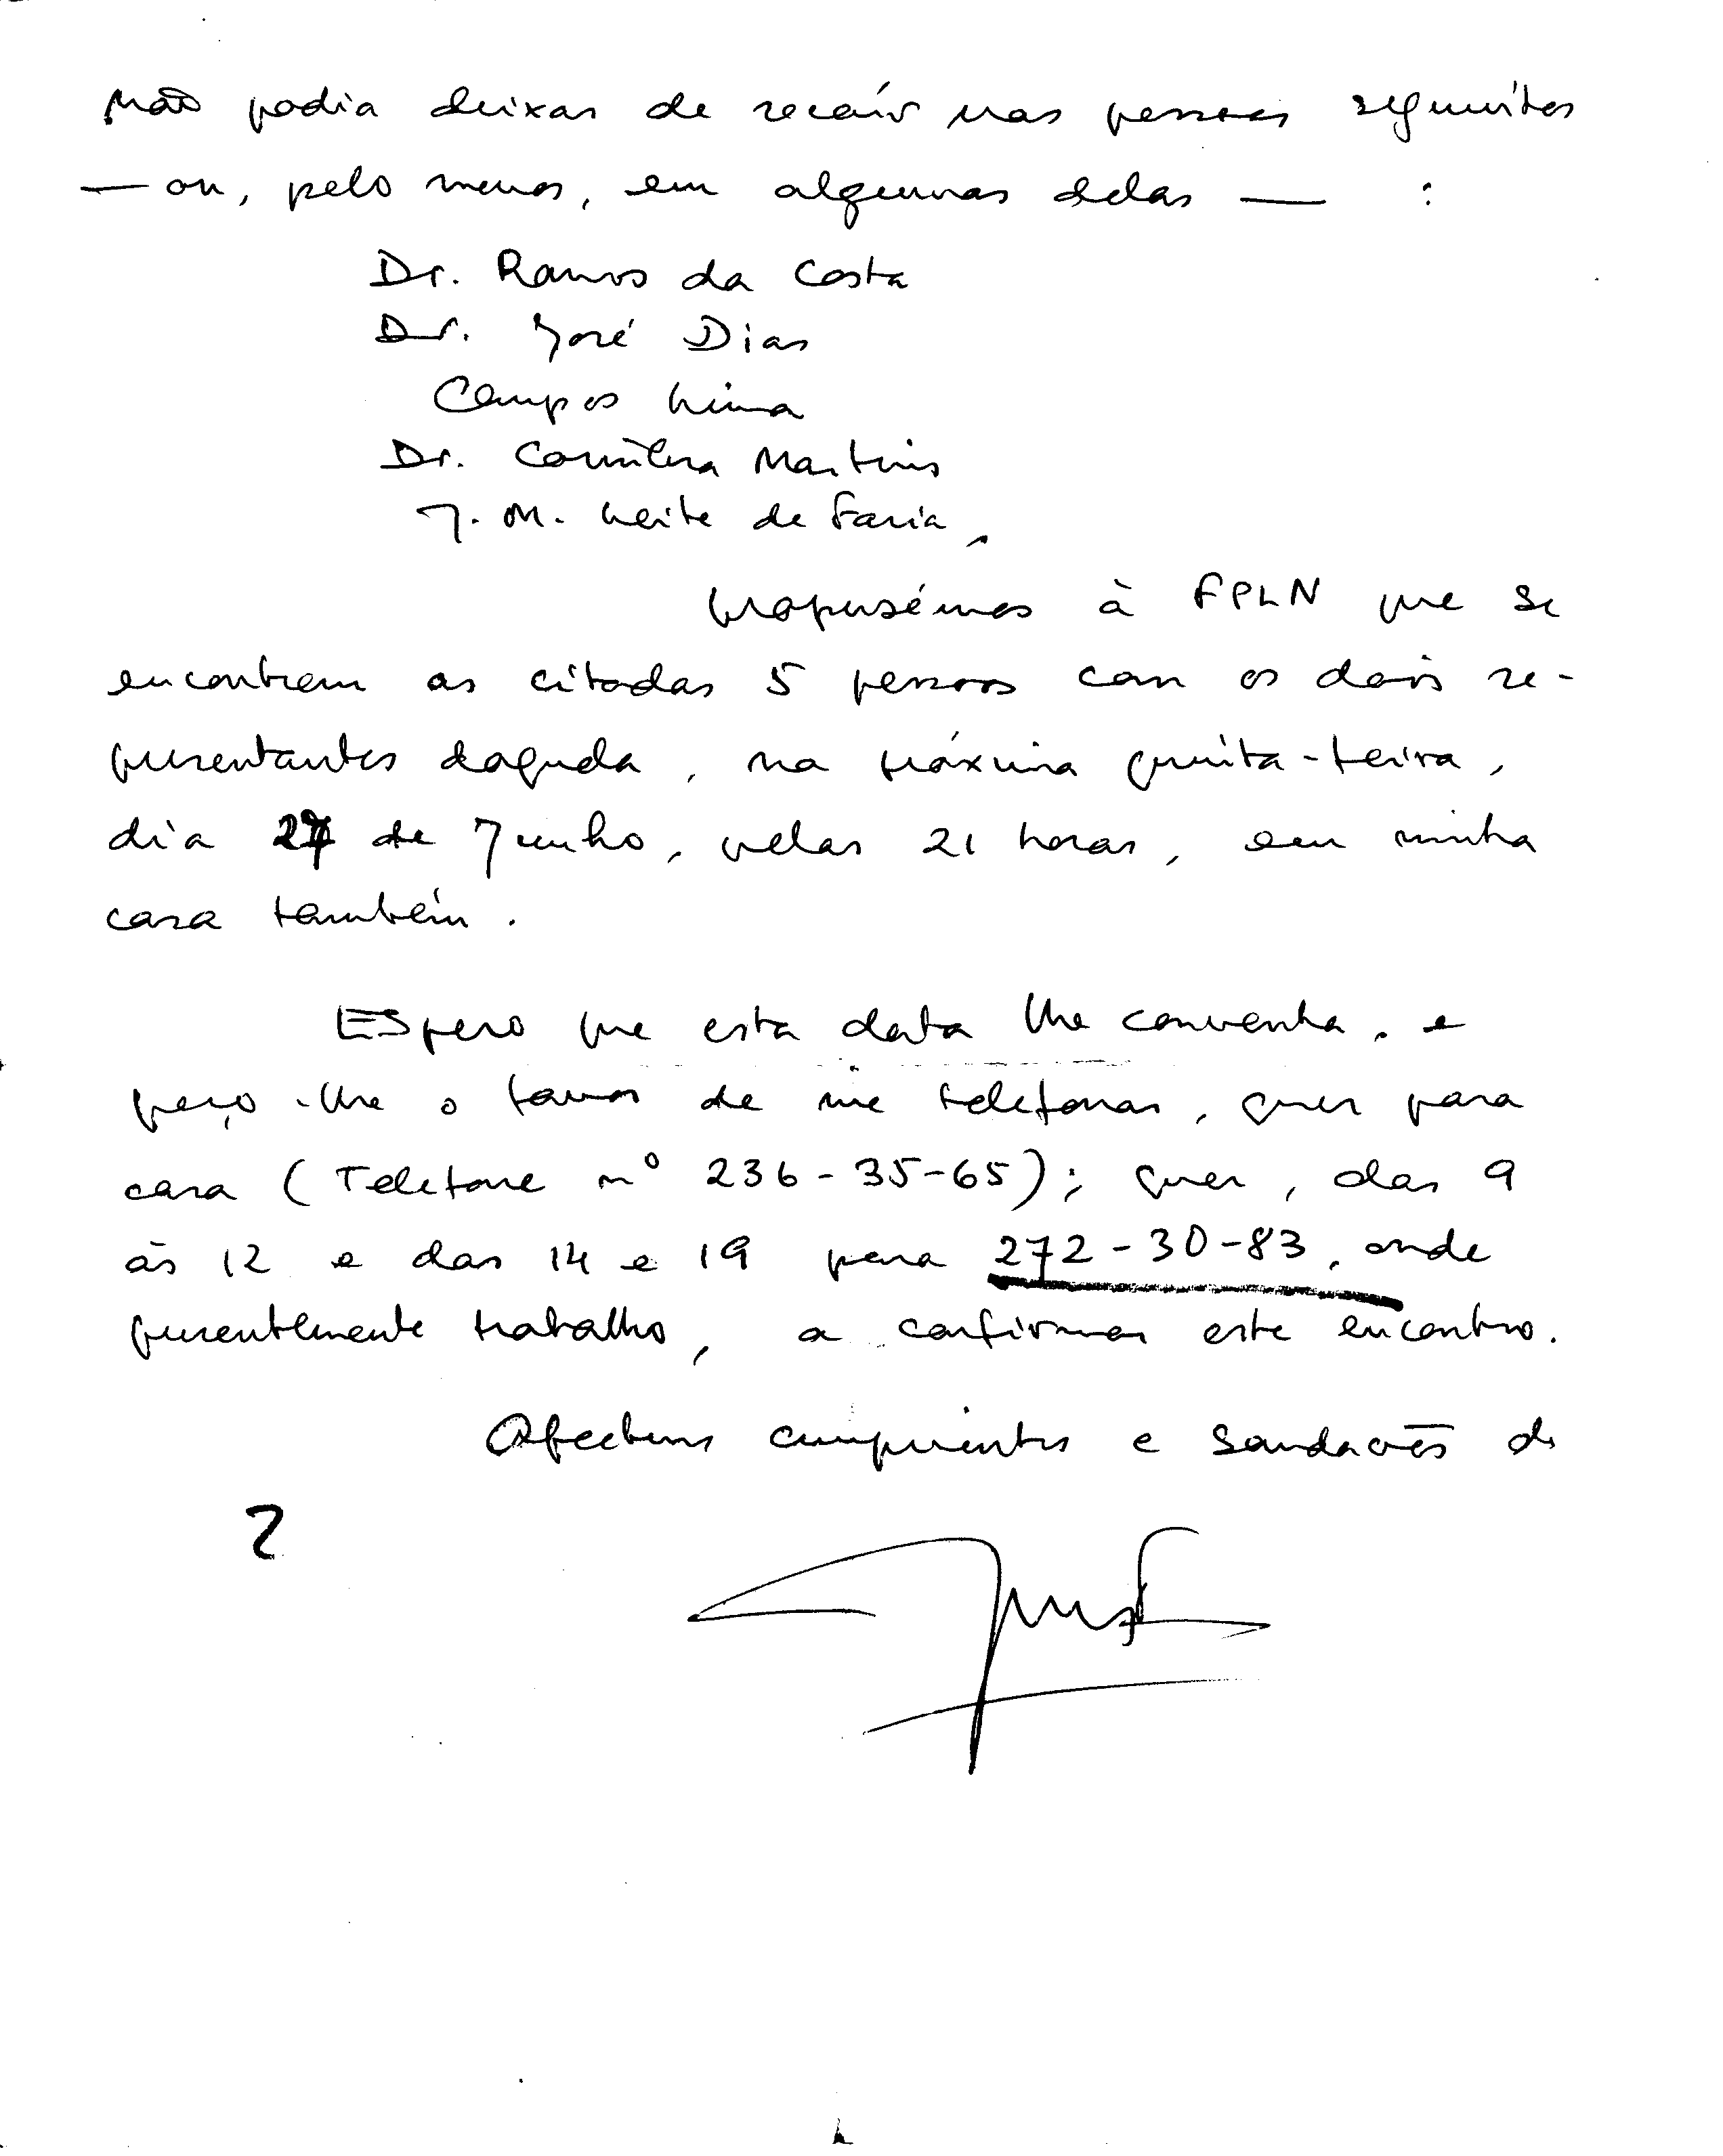 não podia deixar de recaír nas pessoas seguintes
— ou, pelo menos, em algumas delas — :
Dr. Ramos da Costa
Dr. José Dias
Campos Lima
Dr. Coimbra Martins
J. M. Leite de Faria,
propusémos à FPLN que se
encontrem as citadas 5 pessoas com os dois re-
presentantes daquela, na próxima quinta-feira,
dia de Junho, pelas 21 horas, em minha
casa também.
Espero que esta data lhe convenha, e
peço-lhe o favor de me telefonar, quer para
casa (Telefone nº 236-35-65); quer, das 9
às 12 e das 14 e 19 para 272-30-83, onde
presentemente trabalho, a confirmar este encontro.
Afectuosos cumprimentos e saudações de
2